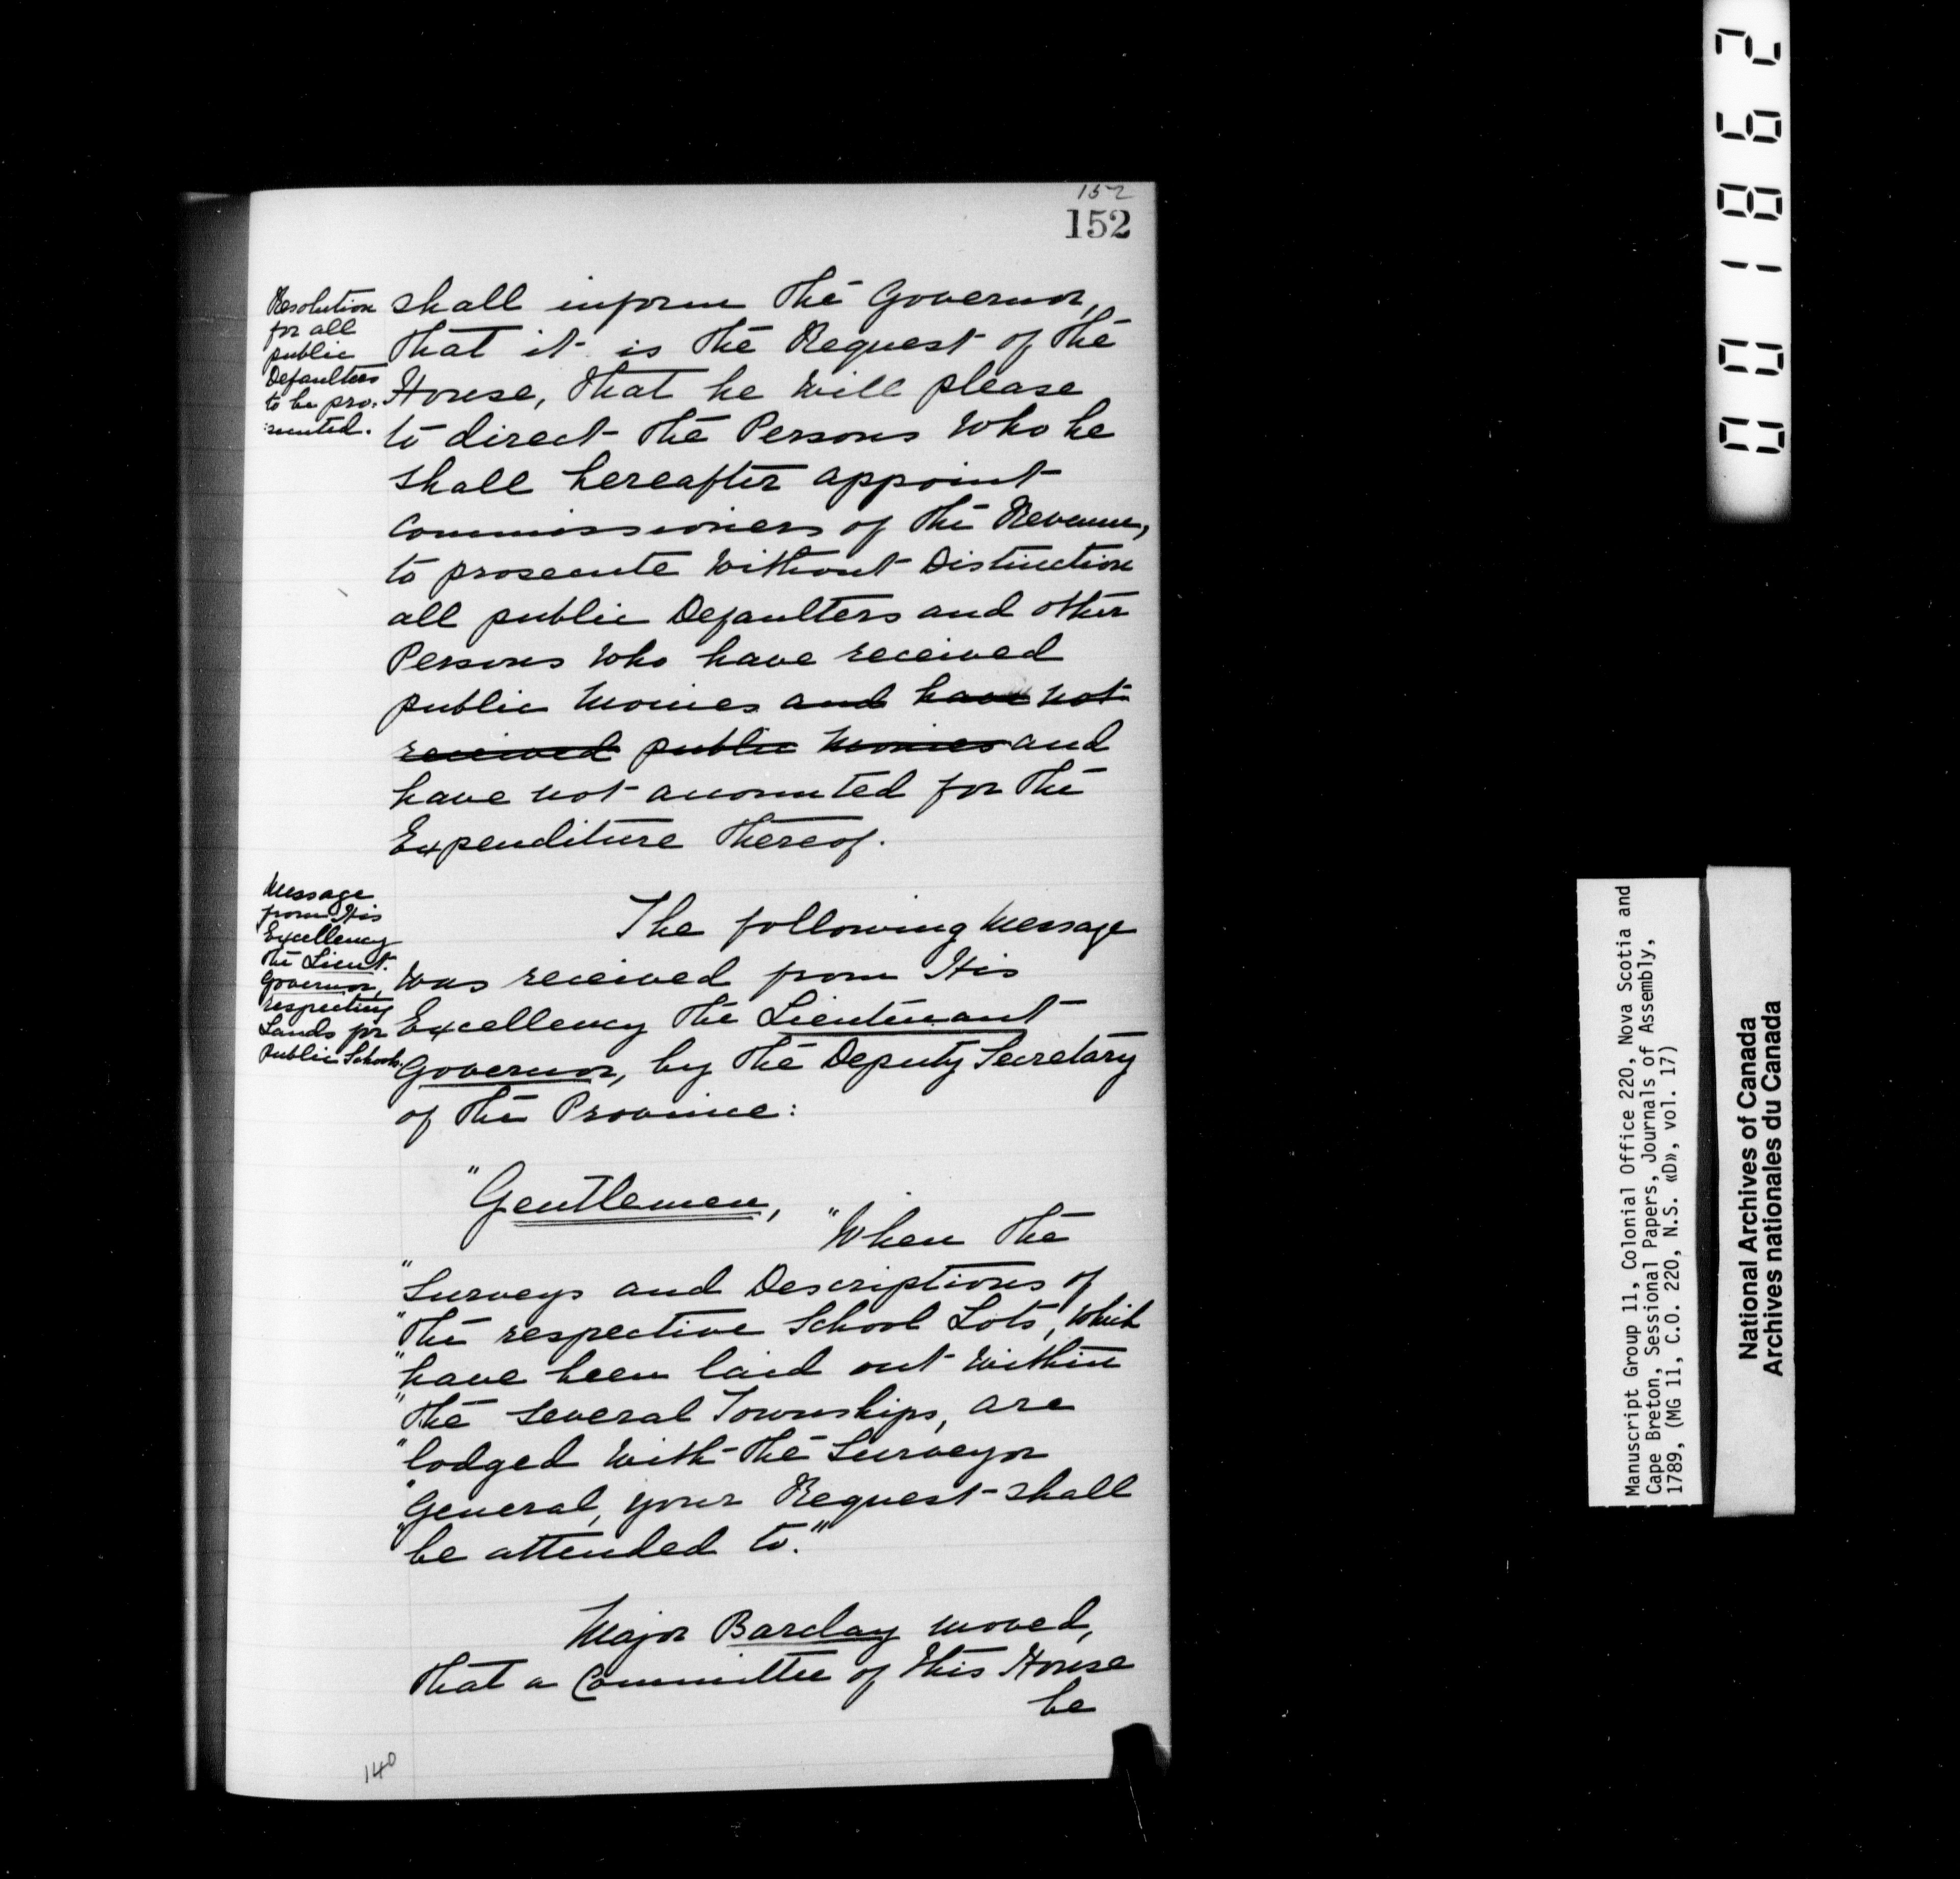 152
152
Resolution
for all
public
Defaulters
to be pro-
:secuted.
shall inform the Governor,
that it is the Request of the
House, that he Will please
to direct the Persons Who he
shall hereafter appoint
Commissioners of the Revenue,
to prosecute Without Distinction
all public Defaulters and other
Persons Who have received
public Monies and have not
received public Monies and
have not accounted for the
Expenditure thereof.
Message
from His
Excellency
the Lieut.
Governor,
respecting
Lands for
Public Schools.
The following Message
Was received from His
Excellency the Lieutenant
Governor, by the Deputy Secretary
of the Province:
"Gentlemen,
"When the
"Surveys and Descriptions of
"the respective School Lots, Which
"have been laid out Within
"the several Townships, are
"lodged With the Surveyor
"General, your Request shall
"be attended to."
Major Barclay moved,
that a Committee of this House
be
140
001862
Manuscript Group 11, Colonial Office 220, Nova Scotia and
Cape Breton, Sessional Papers, Journals of Assembly,
1789, (MG 11, C.O. 220, N.S. «D», vol. 17)
National Archives of Canada
Archives nationales du Canada